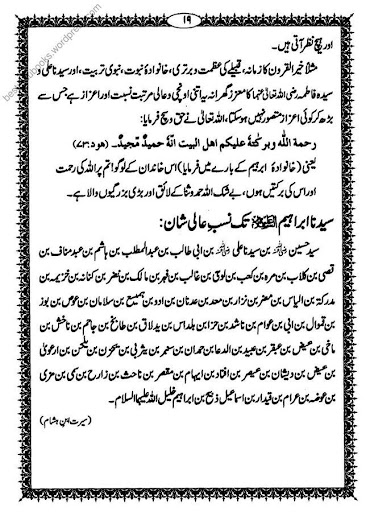 ۱۹
اور ہیچ نظر آتی ہیں۔
مثلاً خیر القرون کا زمانہ، قبیلے کی عظمت و برتری، خانوادۂ نبوت، نبوی تربیت، اور سیدنا علی و
سیدہ فاطمہ رضی اللہ تعالیٰ عنہما کا معزز گھرانہ یہ اتنی اونچی و عالی مرتبت نسبت اور اعزاز ہے جس سے
بڑھ کر کوئی اعزاز متصور نہیں ہو سکتا، اللہ تعالیٰ نے حق و سچ فرمایا:
رحمة اللّٰہ وبرکٰتهٗ علیکم اهل البیت انهٗ حمیدٌ مجیدٌ۔ (ھود:۷۳)
یعنی (خانوادۂ ابراہیم کے بارے میں فرمایا) اس خاندان کے لوگو! تم پر اللہ کی رحمت
اور اس کی برکتیں ہوں، بے شک اللہ حمد و ثنا کے لائق اور بڑی بزرگیوں والا ہے۔
سیدنا ابراہیم علیہ السلام تک نسب عالی شان:
سید حسین بن سیدنا علی بن ابی طالب بن عبدالمطلب بن ہاشم بن عبدمناف بن
قصی بن کلاب بن مرہ بن کعب بن لوی بن غالب بن فہر بن مالک بن نضر بن کنانہ بن خزیمہ بن
مدرکۃ بن الیاس بن مضر بن نزار بن معد بن عدنان بن ادو بن ہمیسع بن سلامان بن عوص بن بوز
بن قموال بن ابی بن عوام بن ناشد بن حزا بن بلداس بن یدلاف بن طابخ بن جاحم بن ناحش بن
ماخی بن عیض بن عبقر بن عبید بن الدعا بن حمدان بن سنبر بن یثربی بن یحزن بن یلحن بن ارعوی
بن عیض بن دیشان بن عیصر بن افناد بن ایہام بن مقصر بن ناحث بن زارح بن سمی بن مزی
بن عوضہ بن عرام بن قیدار بن اسماعیل ذبیح بن ابراہیم خلیل اللہ علیہما السلام۔
(سیرت ابن ہشام)